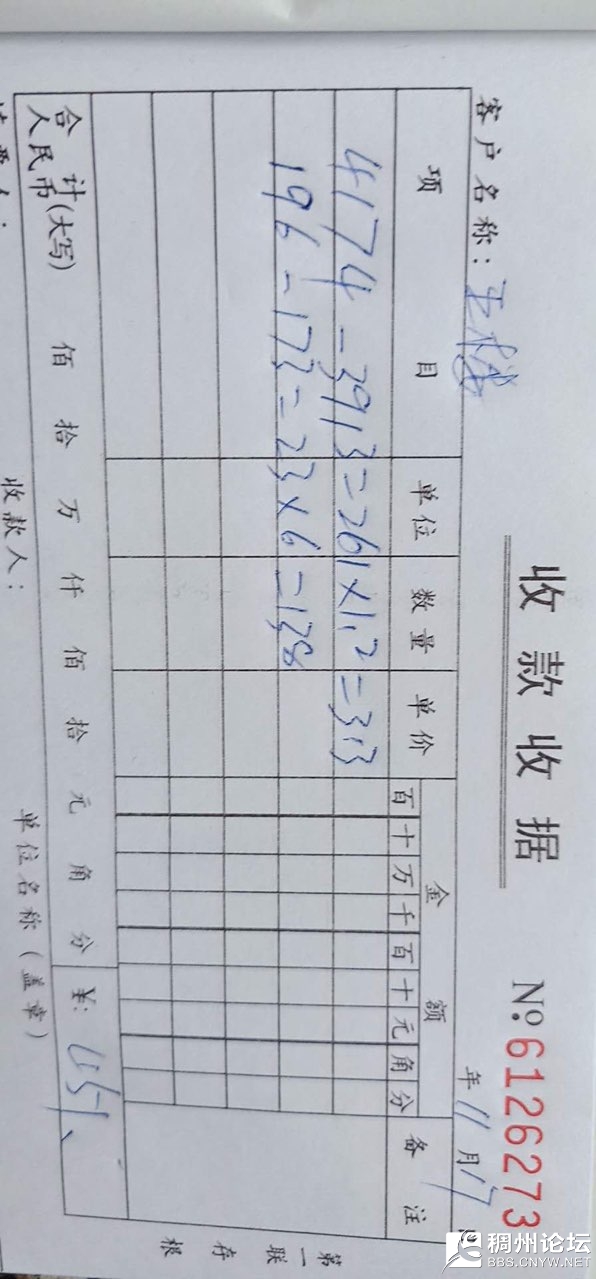 收款收据
№ 6126273
客户名称:
年 11 月 17
项目 单位 数量 单价 金额 备注
百 十 万 千 百 十 元 角 分
4174-3913=261×1.2=313
196-173=23×6=138
合计
人民币(大写) 佰 拾 万 仟 佰 拾 元 角 分 ¥: 451
收款人: 单位名称(盖章)
第一联 存根
稠州论坛
BBS.CNYW.NET